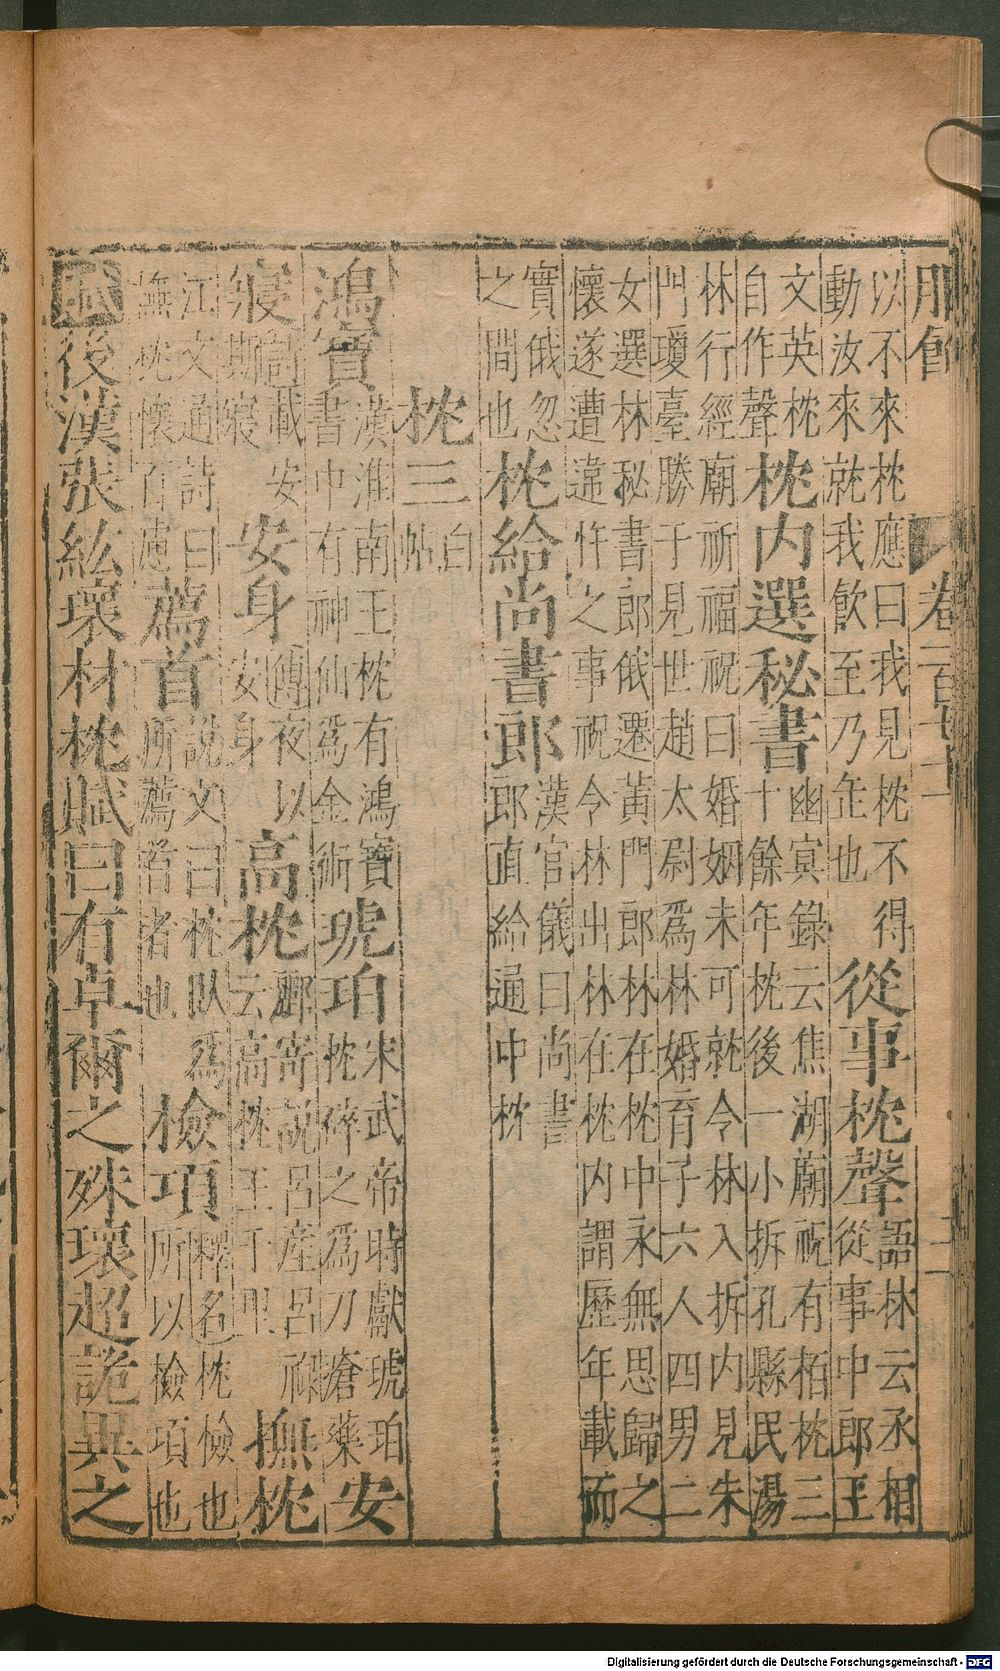 服食 卷一百十一 二
以不來枕應曰我見枕不得
動汝來就我飲至乃缶也
從事枕聲
語林云丞相
從事中郎王
文英枕
自作聲
枕内選秘書
幽冥錄云焦湖廟祝有栢枕三
十餘年枕後一小拆孔縣民湯
林行經廟祈福祝曰婚姻未可就令林入拆内見朱
門瓊臺勝于見世趙太尉爲林婚育子六人四男二
女選林秘書郎俄遷黃門郎林在枕中永無思歸之
懷遂遭違忤之事祝令林出林在枕内謂歷年載而
實俄忽
之間也
枕給尚書郎
漢官儀曰尚書
郎直給通中枕
枕三
白
帖
鴻寳
漢淮南王枕有鴻寶
書中有神仙爲金術
琥珀
枕宋武帝時獻琥珀
枕碎之爲刀瘡藥
安
寢
安
斯寢
安身
傳夜以
安身
高枕
酈寄説呂産呂祿
云高枕王千里
撫枕
江文通詩曰
撫枕懷百慮
薦首
説文曰枕臥爲
所薦首者也
檢項
釋名枕檢也
所以檢項也
賦後漢張紘瓌材枕賦曰有卓爾之殊瓌超詭異之
Digitalisierung gefördert durch die Deutsche Forschungsgemeinschaft - DFG